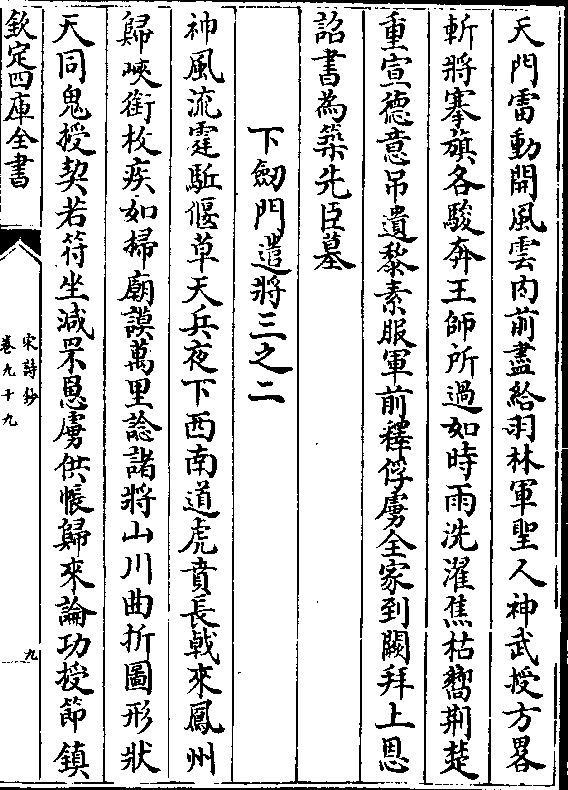 天門雷動開風雲内前盡給羽林軍聖人神武授方畧
斬將搴旗各駿奔王師所過如時雨洗濯焦枯嚮荆楚
重宣德意弔遺黎素服軍前釋俘虜全家到闕拜上恩
詔書為築先臣墓
下劔門遣將三之二
神風流霆駈偃草天兵夜下西南道虎賁長戟來鳳州
歸峽銜枚疾如掃廟謨萬里諗諸將山川曲折圖形狀
天同鬼授契若符坐滅罘罳虜供帳歸來論功授節鎮
欽定四庫全書
宋詩鈔
卷九十九
九